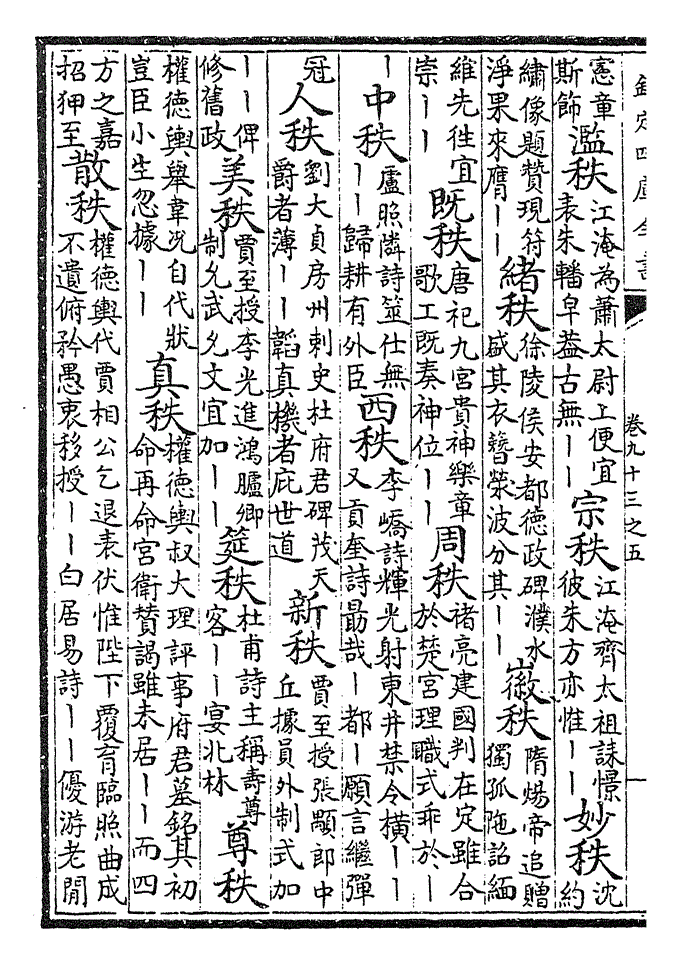 欽定四庫全書 卷九十三之五 一
憲章斯飾 濫秩 江淹為蕭太尉上便宜表朱轓皁葢古無丨丨 宗秩 江淹齊太祖誄憬彼朱方亦惟丨丨 妙秩 沈約
繡像題贊現符淨果來膺丨丨 緒秩 徐陵侯安都德政碑濮水盛其衣簪滎波分其丨丨 徽秩 隋煬帝追贈獨孤陁詔緬
維先往宜崇丨丨 既秩 唐祀九宮貴神樂章歌工既奏神位丨丨 周秩 褚亮建國判在定雖合於楚宮理職式乖於丨
丨 中秩 盧照隣詩筮仕無丨丨歸耕有外臣 西秩 李嶠詩輝光射東井禁令橫丨丨又貢奎詩朂哉丨都丨願言繼彈
冠 人秩 劉大貞房州刺史杜府君碑茂天爵者薄丨丨韜真機者庇世道 新秩 賈至授張顒郎中丘據員外制式加
丨丨俾修舊政 美秩 賈至授李光進鴻臚卿制允武允文宜加丨丨 筵秩 杜甫詩主稱壽尊客丨丨宴北林 尊秩
權德輿舉韋況自代狀豈臣小生忽據丨丨 真秩 權德輿叔大理評事府君墓銘其初命再命宮衛贊謁雖未居丨丨而四
方之嘉招狎至 散秩 權德輿代賈相公乞退表伏惟陛下覆育臨照曲成不遺俯矜愚衷移授丨丨白居易詩丨丨優游老閒